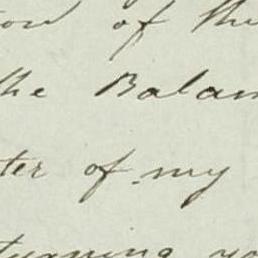 of the
the Balan
ter of my
turning yo